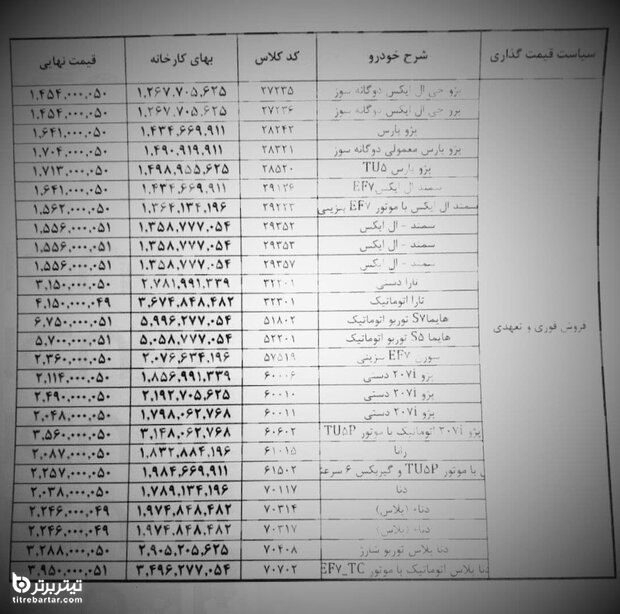 سیاست قیمت گذاری شرح خودرو کد کلاس بهای کارخانه قیمت نهایی
فروش فوری و تعهدی
پژو جی ال ایکس دوگانه سوز ۲۷۲۳۵ ۱,۲۶۷,۷۰۵,۶۲۵ ۱,۴۵۴,۰۰۰,۰۵۰
پژو جی ال ایکس دوگانه سوز ۲۷۲۳۶ ۱,۲۶۷,۷۰۵,۶۲۵ ۱,۴۵۴,۰۰۰,۰۵۰
پژو پارس ۲۸۲۴۲ ۱,۴۳۴,۶۶۹,۹۱۱ ۱,۶۴۱,۰۰۰,۰۵۰
پژو پارس معمولی دوگانه سوز ۲۸۳۲۱ ۱,۴۹۰,۹۱۹,۹۱۱ ۱,۷۰۴,۰۰۰,۰۵۰
پژو پارس TU۵ ۲۸۵۲۰ ۱,۴۹۸,۹۵۵,۶۲۵ ۱,۷۱۳,۰۰۰,۰۵۰
سمند ال ایکس EF۷ ۲۹۱۲۶ ۱,۴۳۴,۶۶۹,۹۱۱ ۱,۶۴۱,۰۰۰,۰۵۰
سمند ال ایکس با موتور EF۷ بنزینی ۲۹۲۲۳ ۱,۳۶۴,۱۳۴,۱۹۶ ۱,۵۶۲,۰۰۰,۰۵۰
سمند - ال ایکس ۲۹۳۵۲ ۱,۳۵۸,۷۷۷,۰۵۴ ۱,۵۵۶,۰۰۰,۰۵۱
سمند - ال ایکس ۲۹۳۵۳ ۱,۳۵۸,۷۷۷,۰۵۴ ۱,۵۵۶,۰۰۰,۰۵۱
سمند - ال ایکس ۲۹۳۵۷ ۱,۳۵۸,۷۷۷,۰۵۴ ۱,۵۵۶,۰۰۰,۰۵۱
تارا دستی ۳۲۲۰۱ ۲,۷۸۱,۹۹۱,۳۳۹ ۳,۱۵۰,۰۰۰,۰۵۰
تارا اتوماتیک ۳۲۳۰۱ ۳,۶۷۴,۸۴۸,۴۸۲ ۴,۱۵۰,۰۰۰,۰۴۹
هایما S۷ توربو اتوماتیک ۵۱۸۰۲ ۵,۹۹۶,۲۷۷,۰۵۴ ۶,۷۵۰,۰۰۰,۰۵۱
هایما S۵ توربو اتوماتیک ۵۲۲۰۱ ۵,۰۵۸,۷۷۷,۰۵۴ ۵,۷۰۰,۰۰۰,۰۵۱
سورن EF۷ بنزینی ۵۷۵۱۹ ۲,۰۷۶,۶۳۴,۱۹۶ ۲,۳۶۰,۰۰۰,۰۵۰
پژو ۲۰۷i دستی ۶۰۰۰۶ ۱,۸۵۶,۹۹۱,۳۳۹ ۲,۱۱۴,۰۰۰,۰۵۰
پژو ۲۰۷i دستی ۶۰۰۱۰ ۲,۱۹۲,۷۰۵,۶۲۵ ۲,۴۹۰,۰۰۰,۰۵۰
پژو ۲۰۷i دستی ۶۰۰۱۱ ۱,۷۹۸,۰۶۲,۷۶۸ ۲,۰۴۸,۰۰۰,۰۵۰
پژو ۲۰۷i اتوماتیک با موتور TU۵P ۶۰۶۰۲ ۳,۱۴۸,۰۶۲,۷۶۸ ۳,۵۶۰,۰۰۰,۰۵۰
رانا ۶۱۰۱۵ ۱,۸۳۲,۸۸۴,۱۹۶ ۲,۰۸۷,۰۰۰,۰۵۰
با موتور TU۵P و گیربکس ۶ سرعته ۶۱۵۰۲ ۱,۹۸۴,۶۶۹,۹۱۱ ۲,۲۵۷,۰۰۰,۰۵۰
دنا ۷۰۱۱۷ ۱,۷۸۹,۱۳۴,۱۹۶ ۲,۰۳۸,۰۰۰,۰۵۰
دنا+ (پلاس) ۷۰۳۱۴ ۱,۹۷۴,۸۴۸,۴۸۲ ۲,۲۴۶,۰۰۰,۰۴۹
دنا+ (پلاس) ۷۰۳۱۷ ۱,۹۷۴,۸۴۸,۴۸۲ ۲,۲۴۶,۰۰۰,۰۴۹
دنا پلاس توربو شارژ ۷۰۴۰۸ ۲,۹۰۵,۲۰۵,۶۲۵ ۳,۲۸۸,۰۰۰,۰۵۰
دنا پلاس اتوماتیک با موتور EF۷_TC ۷۰۷۰۲ ۳,۴۹۶,۲۷۷,۰۵۴ ۳,۹۵۰,۰۰۰,۰۵۱
تیتر برتر
titrebartar.com